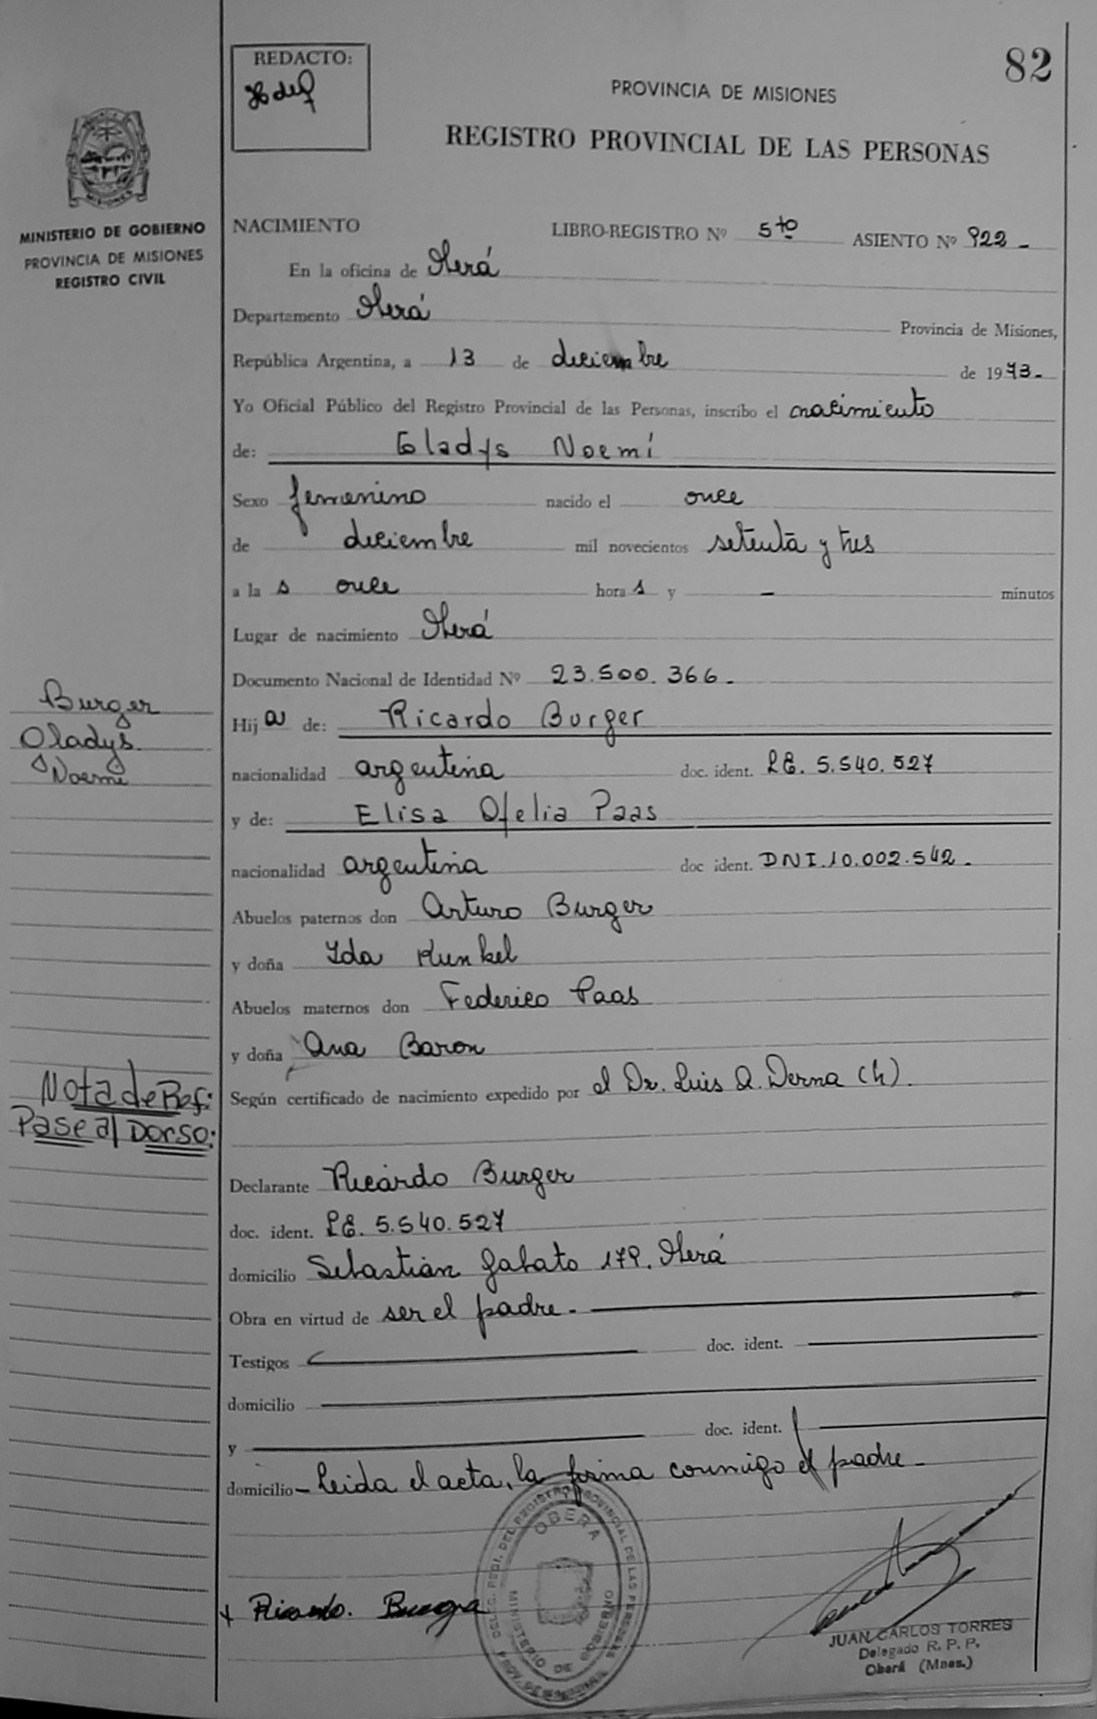 82
REDACTO:
PROVINCIA DE MISIONES
REGISTRO PROVINCIAL DE LAS PERSONAS
MISIONES
MINISTERIO DE GOBIERNO
PROVINCIA DE MISIONES
REGISTRO CIVIL
NACIMIENTO LIBRO-REGISTRO Nº 5to ASIENTO Nº 922 -
En la oficina de Oberá
Departamento Oberá Provincia de Misiones,
República Argentina, a 13 de diciembre de 1973.-
Yo Oficial Público del Registro Provincial de las Personas, inscribo el nacimiento
de: Gladys Noemí
Sexo femenino nacido el once
de diciembre mil novecientos setenta y tres
a la s once hora s y - minutos
Lugar de nacimiento Oberá
Documento Nacional de Identidad Nº 23.500.366.-
Burger
Gladys
Noemí
Hij a de: Ricardo Burger
nacionalidad argentina doc. ident. L.E. 5.540.527
y de: Elisa Ofelia Paas
nacionalidad argentina doc ident. DNI.10.002.542.-
Abuelos paternos don Arturo Burger
y doña Ida Kunkel
Abuelos maternos don Federico Paas
y doña Ana Baron
Nota de Ref:
Pase al Dorso:
Según certificado de nacimiento expedido por el Dr. Luis A. Derna (h).
Declarante Ricardo Burger
doc. ident. L.E. 5.540.527
domicilio Sebastián Gabato 179. Oberá
Obra en virtud de ser el padre.-
Testigos doc. ident.
domicilio
y doc. ident.
domicilio - leida el acta, la firma conmigo el padre.-
OBERA
MINISTERIO DE GOBIERNO
Ricardo. Burger
JUAN CARLOS TORRES
Delegado R. P. P.
Oberá (Mnes.)